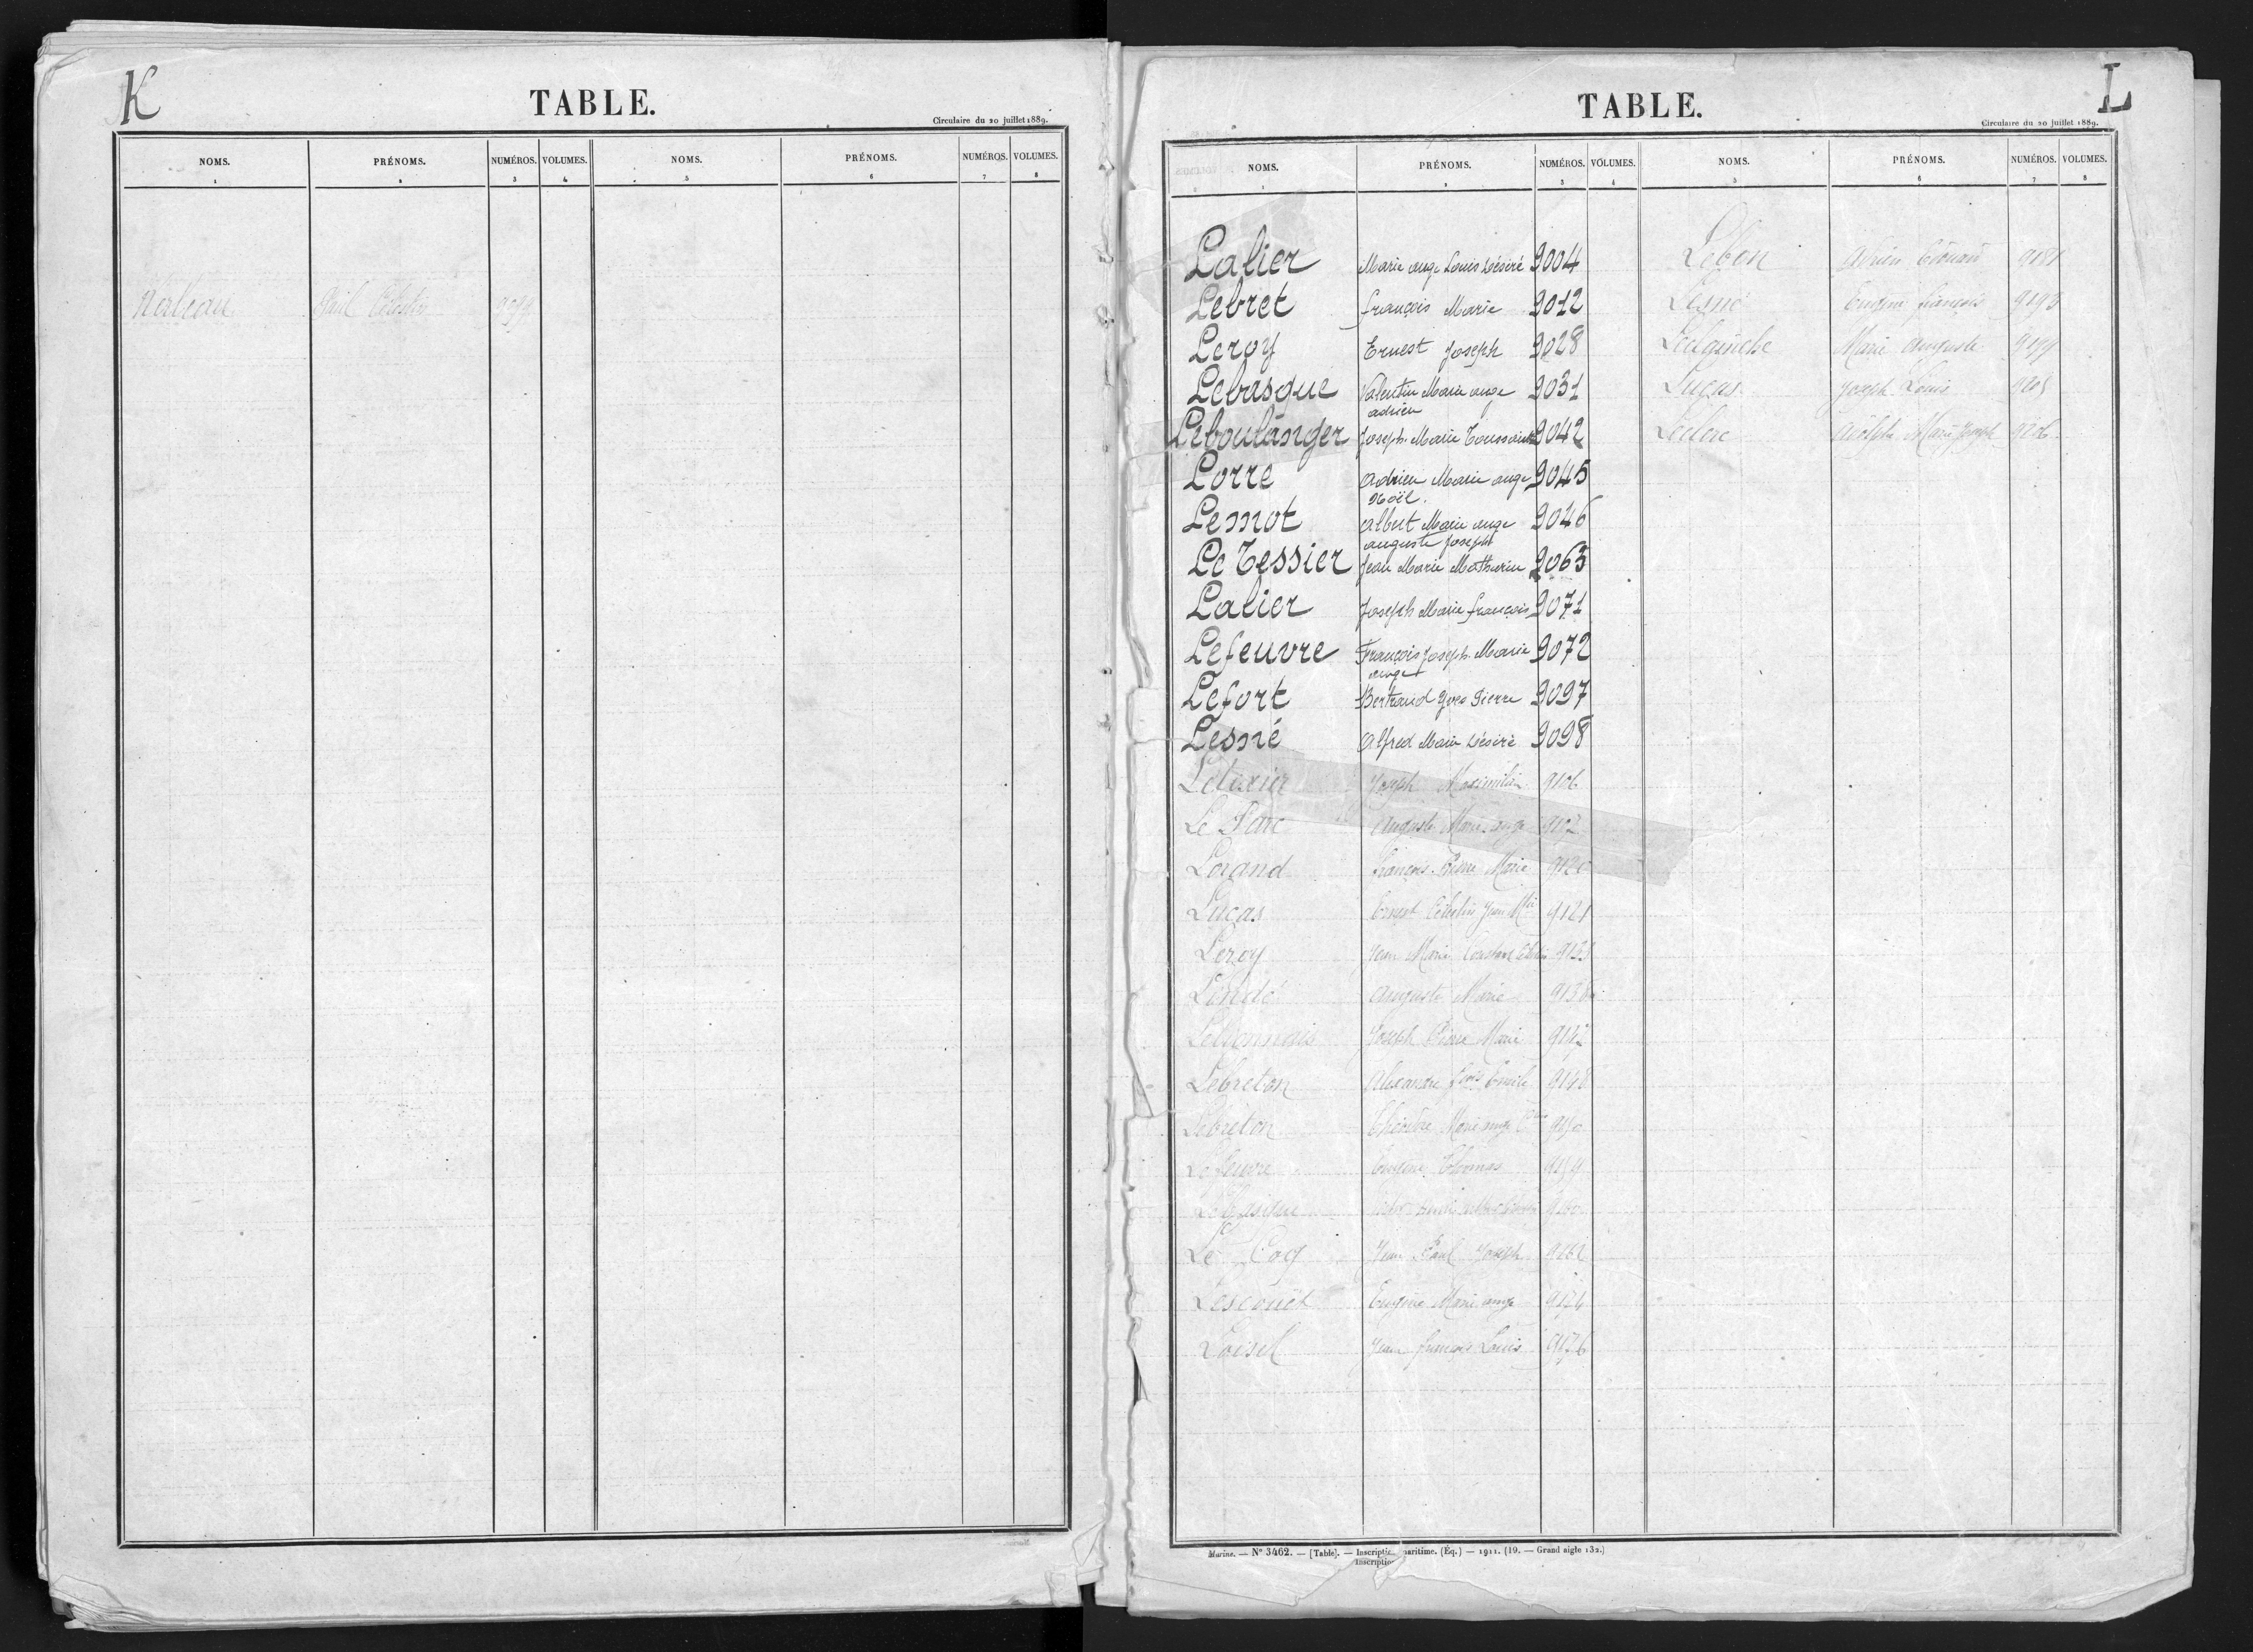 K
TABLE.
Circulaire du 20 juillet 1889.
NOMS. PRÉNOMS. NUMÉROS. VOLUMES. NOMS. PRÉNOMS. NUMÉROS. VOLUMES.
1 2 3 4 5 6 7 8
Paul Célestin
L
TABLE.
Circulaire du 20 juillet 1889.
NOMS. PRÉNOMS. NUMÉROS. VOLUMES. NOMS. PRÉNOMS. NUMÉROS. VOLUMES.
1 2 3 4 5 6 7 8
Lalier Marie ange Louis Désiré 9004
Lebret françois Marie 9012
Leroy Ernest Joseph 9028
Lebasque Valentin Marie ange 9031
adrien
Leboulanger Joseph Marie Toussaint 9042
Lorre Adrien Marie ange 9045
Noël.
Lemot Albert Marie ange 9046
auguste Joseph
Le Tessier Jean Marie Mathurin 9063
Lalier Joseph Marie françois 9071
Lefeuvre François Joseph Marie 9072
ange
Lefort Bertrand Yves Pierre 9097
Lesné Alfred Marie Désiré 9098
Letexier Joseph Maximilien 9106
Le Parc Auguste Marie ange
Lorand françois Pierre Marie 9120
Lucas Ernest Célestin Jean Mie 9121
Leroy Jean Marie Constant
Lindé Auguste Marie
Joseph Pierre Marie 9142
Lebreton Alexandre fois Emile 9148
Lebreton Marie ange
Lefeuvre Eugène Thomas 9159
9160
Le Coq Jean Paul Joseph 9162
Lescouët Eugène Marie ange 9174
Loisel Jean françois Louis 9176
Lebon Adrien Edouard
Lesné Eugène françois 9193
Marie Auguste 9199
Lucas Joseph Louis
Leclerc Adolphe Marie Joseph 9206
Marine. — N° 3462. — [Table]. — maritime. (Éq.) — 1911. (19. — Grand aigle 132.)